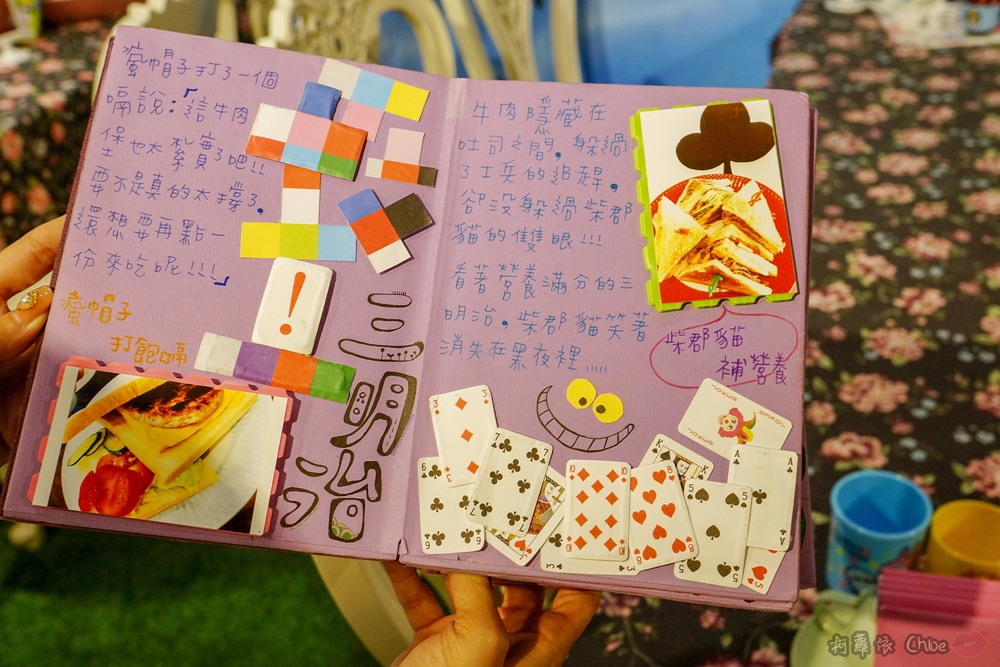 瘋帽子打了一個
嗝說：「這牛肉
堡也太紮實了吧!!
要不是真的太撐了，
還想要再點一
份來吃呢!!!」
瘋帽子
打飽嗝
!
三
明
治
牛肉隱藏在
吐司之間，躲過
了士兵的追趕，
卻没躲過柴郡
貓的雙眼!!!
看著營養滿分的三
明治，柴郡貓笑著
消失在黑夜裡
柴郡貓
補營養
3
3
6
6
7
7
J
3
10
10
8
8
K
K
5
5
JOKER
JOKER
A
A
A
5
柯蘿依 Chloe